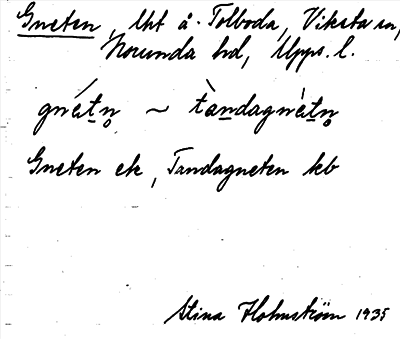 Gneten, lht å. Tolboda, Viksta sn,
Norunda hd, Upps. l.
gnétn̥ ~ tàndagnètn̥
Gneten ek, Tandagneten kb
Stina Holmström 1935